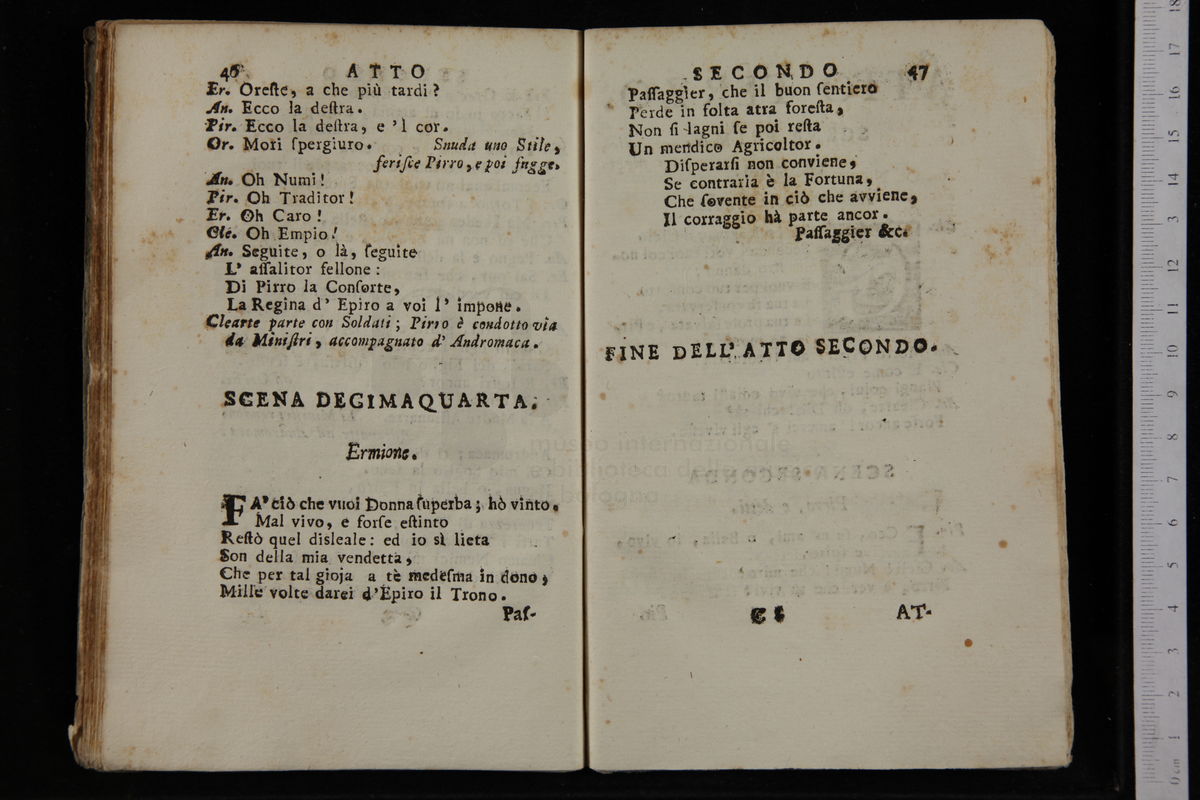 46 ATTO
Er. Oreſte, a che più tardi?
An. Ecco la deſtra.
Pir. Ecco la deſtra, e 'l cor.
Or. Mori ſpergiuro. Snuda uno Stile,
feriſce Pirro, e poi fugge.
An. Oh Numi!
Pir. Oh Traditor!
Er. Oh Caro!
Cle. Oh Empio!
An. Seguite, o là, ſeguite
L' aſſalitor fellone:
Di Pirro la Conſorte,
La Regina d' Epiro a voi l' impone.
Clearte parte con Soldati; Pirro è condotto via
da Miniſtri, accompagnato d' Andromaca.
SCENA DECIMAQUARTA.
Ermione.
FA' ciò che vuoi Donna ſuperba; hò vinto.
Mal vivo, e forſe eſtinto
Reſtò quel disleale: ed io sì lieta
Son della mia vendetta,
Che per tal gioja a tè medeſma in dono,
Mille volte darei d'Epiro il Trono.
Paſ-
SECONDO 47
Paſſaggier, che il buon ſentiero
Perde in folta atra foreſta,
Non ſi lagni ſe poi reſta
Un mendico Agricoltor.
Diſperarſi non conviene,
Se contraria è la Fortuna,
Che ſovente in ciò che avviene,
Il corraggio hà parte ancor.
Paſſaggier &c.
FINE DELL' ATTO SECONDO.
AT-
museo internazionale
e biblioteca della musica
bologna